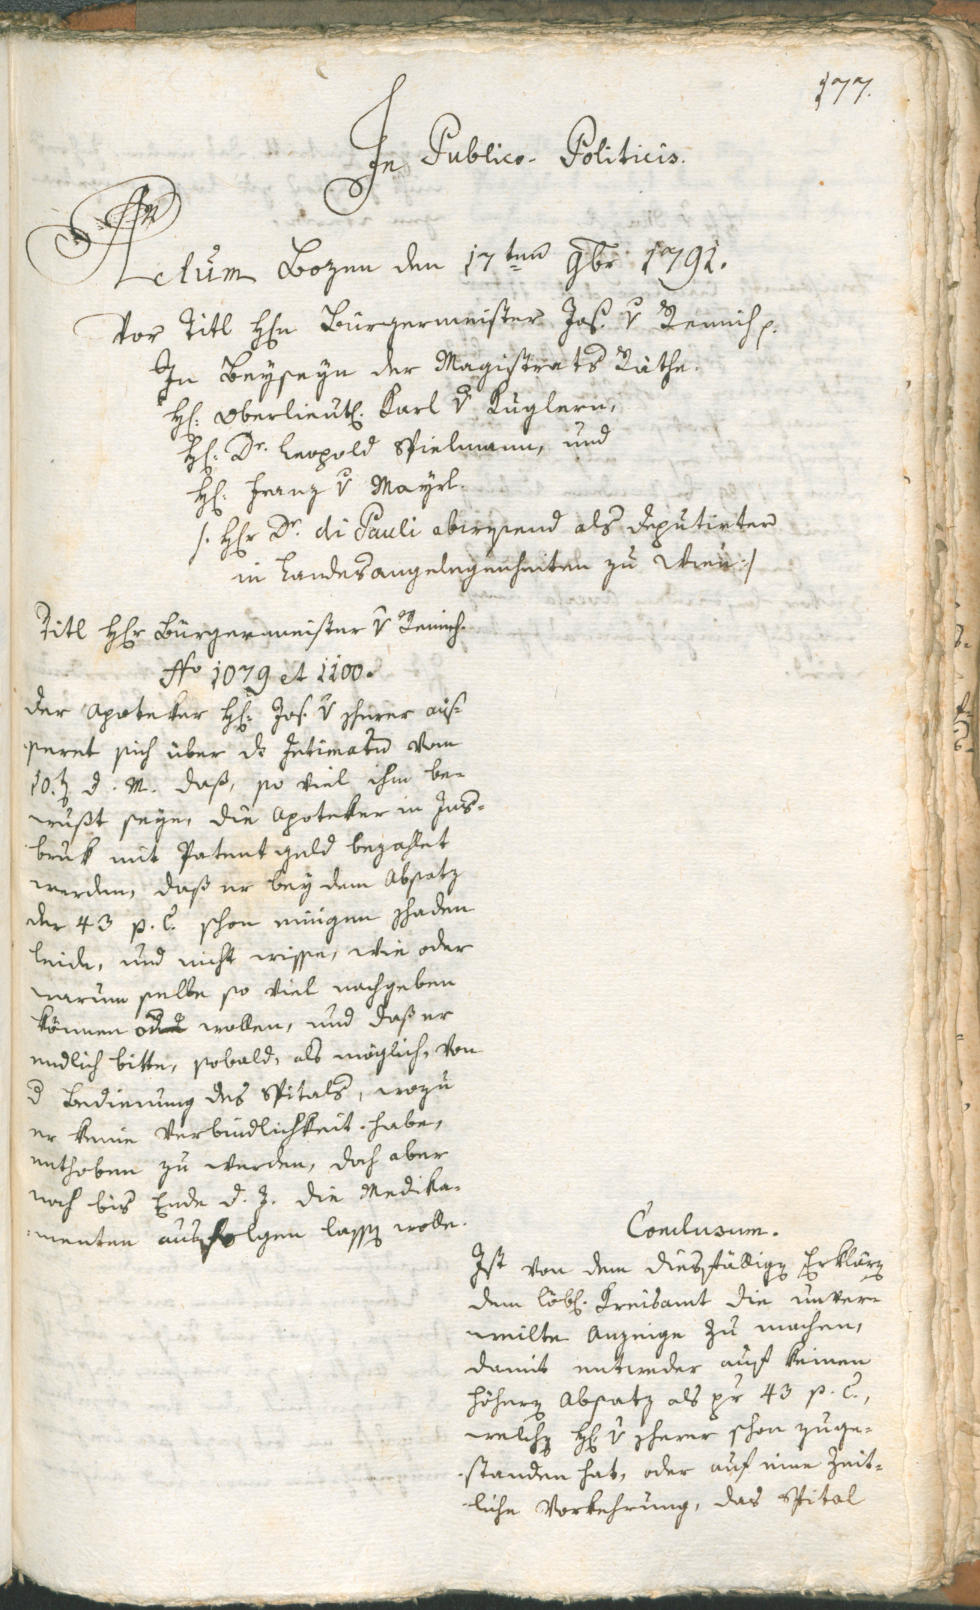 177.
In Publico-Politicis.
Actum Bozen den 17ten 9br 1791.
Vor Titl Hhn Bürgermeister Jos. v Remich p.
In Beyseyn der Magistrats Räthe.
H: Oberlieut. Karl v Kuglern,
H: Dr. Leopold Spielmann, und
H: Franz v Mayrl.
/: Hr Dr. di Pauli abwesend als Deputirter
in Landesangelegenheiten zu Wien :/
Titl Hr Bürgermeister v Remich.
No 1079 et 1100.
Der Apoteker H: Jos. v Scherer aus-
seret sich über ds Intimatum vom
10.t d. M. daß, so viel ihm be-
wußt seye, die Apoteker in Ins-
bruk mit Patentgeld bezahlet
werden, daß er bey dem Absatz
der 43 p. C. schon einigen Schaden
leide, und nicht wisse, wie oder
warum selbe so viel nachgeben
können oder wollen, und daß er
endlich bitte, sobald, als möglich, von
d Bedienung des Spitals, wozu
er keine Verbindlichkeit habe,
enthoben zu werden, doch aber
noch bis Ende d. J. die Medika-
menten ausfolgen lassen wolle.
Conclusum.
Ist von dem diesfälligen Erklären
dem löbl. Kreisamt die unver-
weilte Anzeige zu machen,
damit entweder auf keinen
höhern Absatz als pr 43 p. C.,
welchen H v Scherer schon zuge-
standen hat, oder auf eine Zeit-
liche Vorkehrung, das Spital